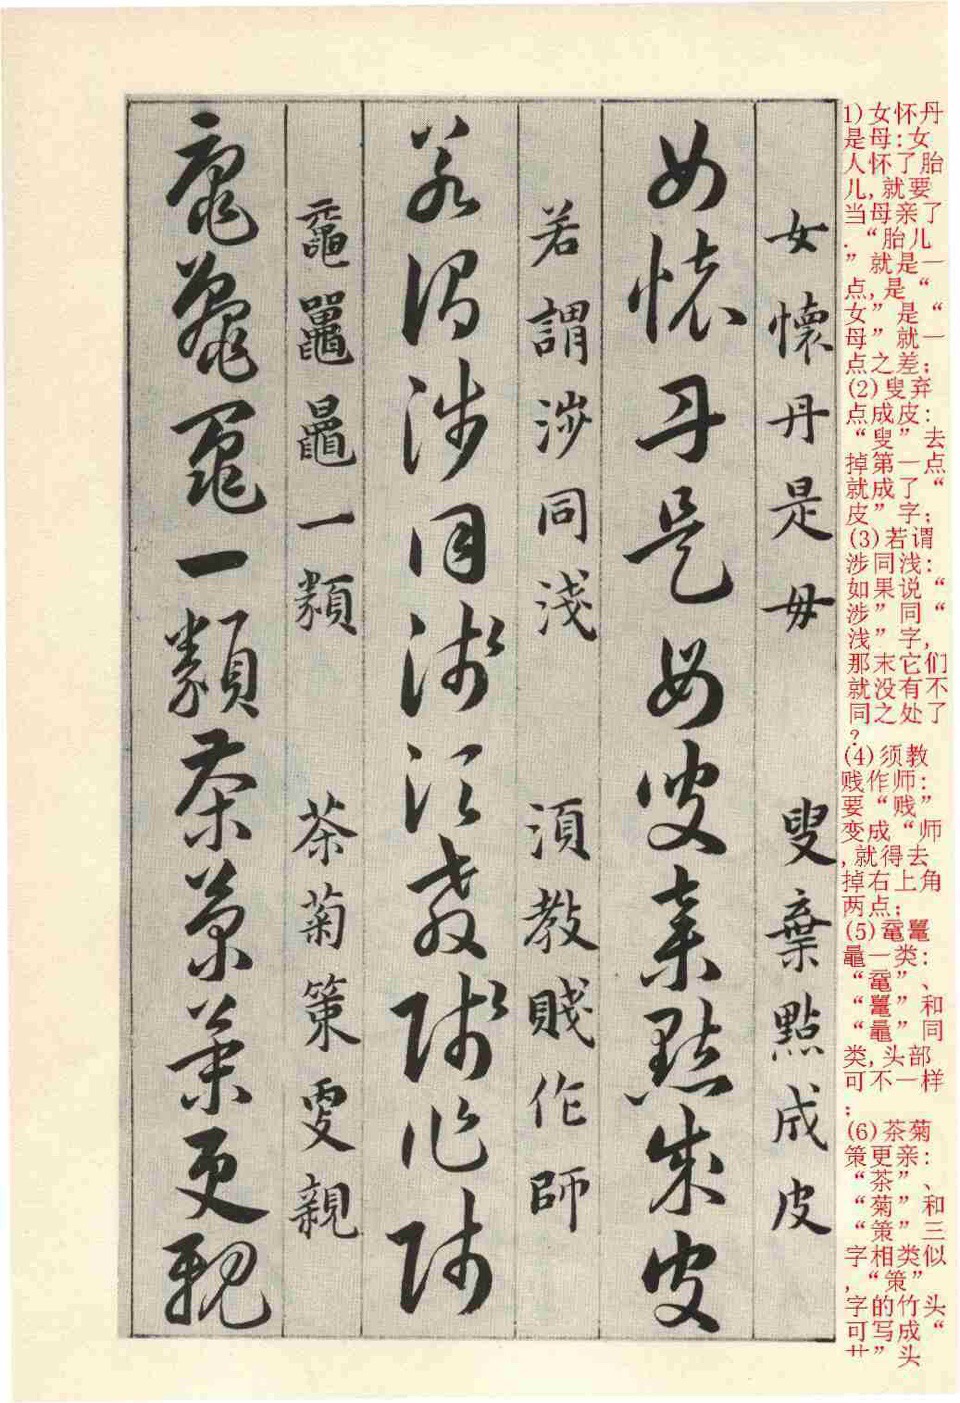 女懷丹是毋 叟棄點成皮
女懷丹是母叟棄點成皮
若謂涉同淺 須教賤作師
若謂涉同淺須教賤作師
黿鼉鼂一類 茶菊策更親
黿鼉鼂一類茶菊策更親
1)女怀丹
是母:女
人怀了胎
儿,就要
当母亲了
.“胎儿
”就是一
点,是“
女”是“
母”就一
点之差;
(2)叟弃
点成皮:
“叟”去
掉第一点
就成了“
皮”字;
(3)若谓
涉同浅:
如果说“
涉”同“
浅”字,
那末它们
就没有不
同之处了
?
(4)须教
贱作师:
要“贱”
变成“师
,就得去
掉右上角
两点;
(5)鼋鼍
鼂一类:
“鼋”、
“鼍”和
“鼂”同
类,头部
可不一样
;
(6)茶菊
策更亲:
“茶”、
“菊”和
“策”三
字相类似
,“策”
字的竹头
可写成“
艹”头